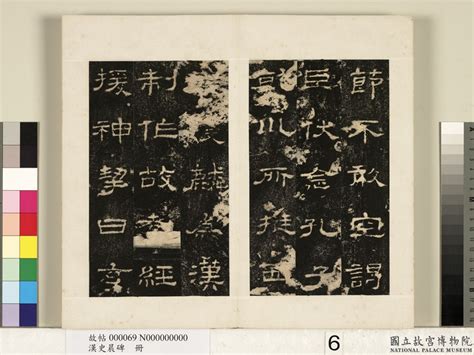 節不敢空謁
臣伏念孔子
乾川所挺西
麟為漢
制作故孝經
援神挈曰玄
故帖 000069 N000000000
漢史晨碑 冊
6
國立故宮博物院
NATIONAL PALACE MUSEUM